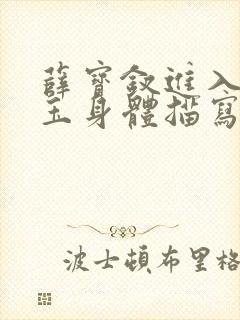 薛寶釵進入
玉身體描寫
波士頓布里格